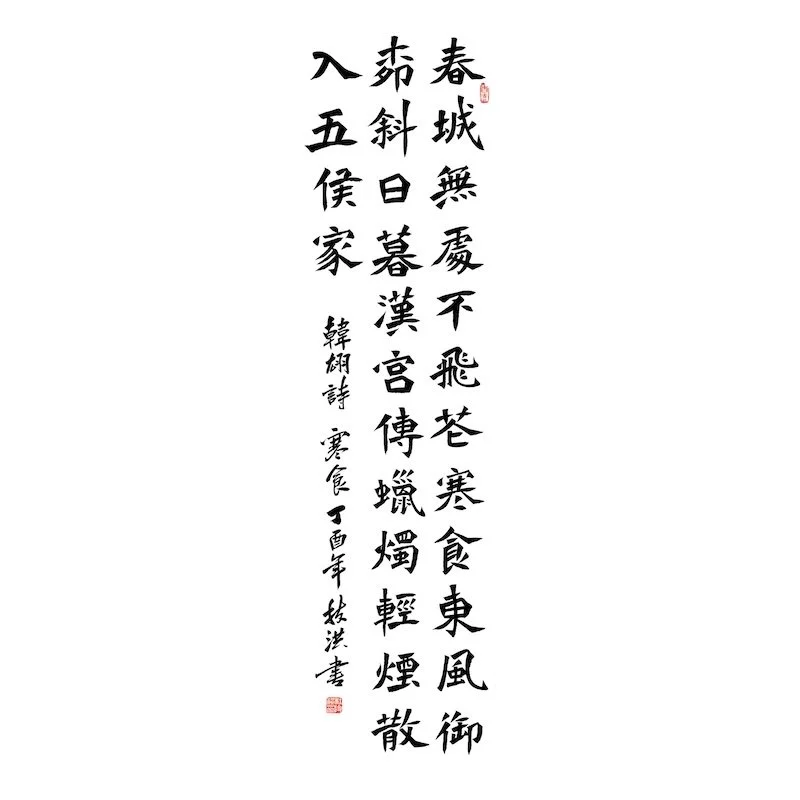 春城無處不飛花寒食東風御
柳斜日暮漢宮傳蠟燭輕煙散
入五侯家
韓翃詩 寒食 丁酉年 枝洪書